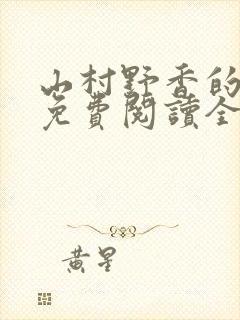 山村野香的
免費閱讀全
黃星